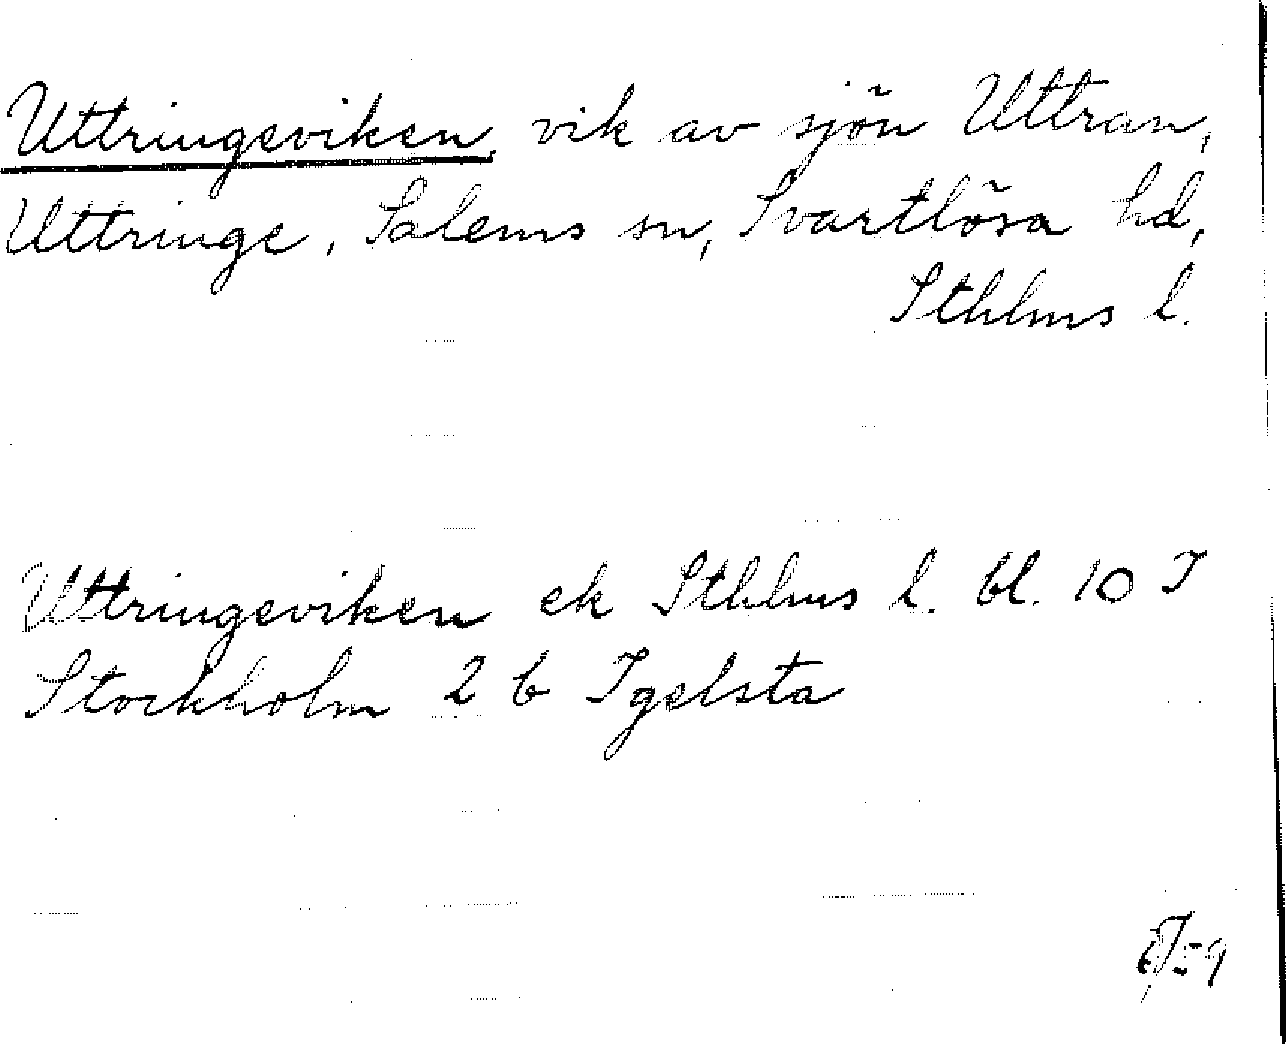 Uttringeviken, vik av sjön Uttran,
Uttringe, Salems sn, Svartlösa hd,
Sthlms l.
Uttringeviken ek Sthlms l. bl. 10 I
Stockholm 2 b Igelsta